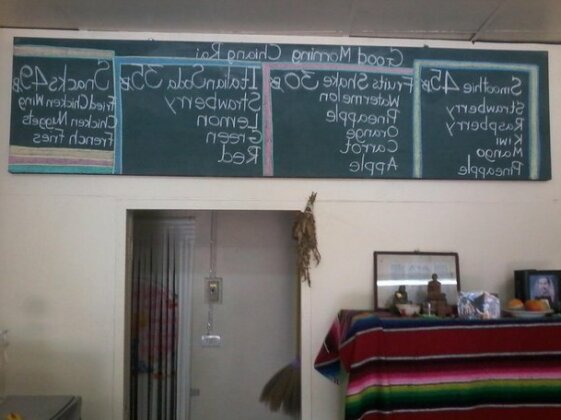 Good Morning Chiang Rai
Smoothie 45฿
Strawberry
Raspberry
Kiwi
Mango
Pineapple
Fruits Shake 30฿
Watermelon
Pineapple
Orange
Carrot
Apple
Italian Soda 35฿
Strawberry
Lemon
Green
Red
Snacks 49฿
Fried Chicken Wing
Chicken Nuggets
French Fries